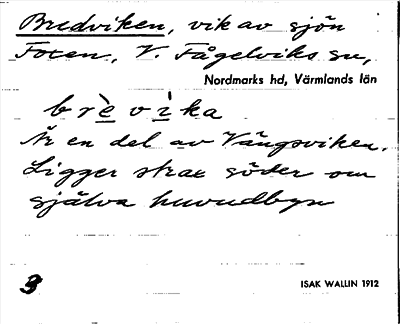 Bredviken, vik av sjön
Foxen, V. Fågelviks sn,
Nordmarks hd, Värmlands län
brèvìka
Är en del av Vångsviken.
Ligger strax söder om
själva huvudbyn
3
ISAK WALLIN 1912